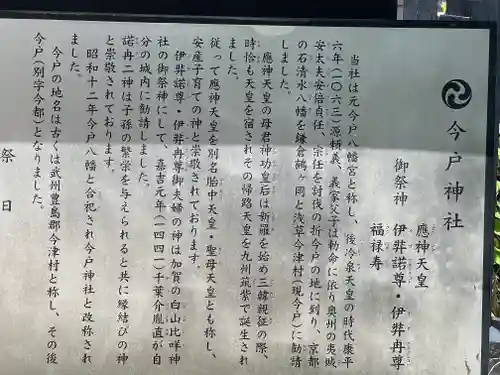 今戸神社
御祭神
應神天皇
伊弉諾尊・伊弉冉尊
福禄寿
当社は元今戸八幡宮と称し、後冷泉天皇の時代康平
六年(一〇六三)源頼義、義家父子は勅命に依り奥州の夷賊
安太夫安倍貞任、宗任を討伐の折今戸の地に到り、京都
の石清水八幡を鎌倉鶴ヶ岡と浅草今津村(現今戸)に勧請
しました。
應神天皇の母君神功皇后は新羅を始め三韓親征の際、
時恰も天皇を宿されその帰路天皇を九州筑紫で誕生され
ました。
従って應神天皇を別名胎中天皇・聖母天皇とも称し、
安産子育ての神と崇敬されております。
伊弉諾尊・伊弉冉尊御夫婦の神は加賀の白山比咩神
社の御祭神にして、嘉吉元年(一四四一)千葉介胤直が自
分の城内に勧請しました。
諾冉二神は子孫の繁栄を与えられると共に縁結びの神
と崇敬されております。
昭和十二年今戸八幡と合祀され今戸神社と改称され
ました。
今戸の地名は古くは武州豊島郡今津村と称し、その後
今戸(別字今都)となりました。
祭 日